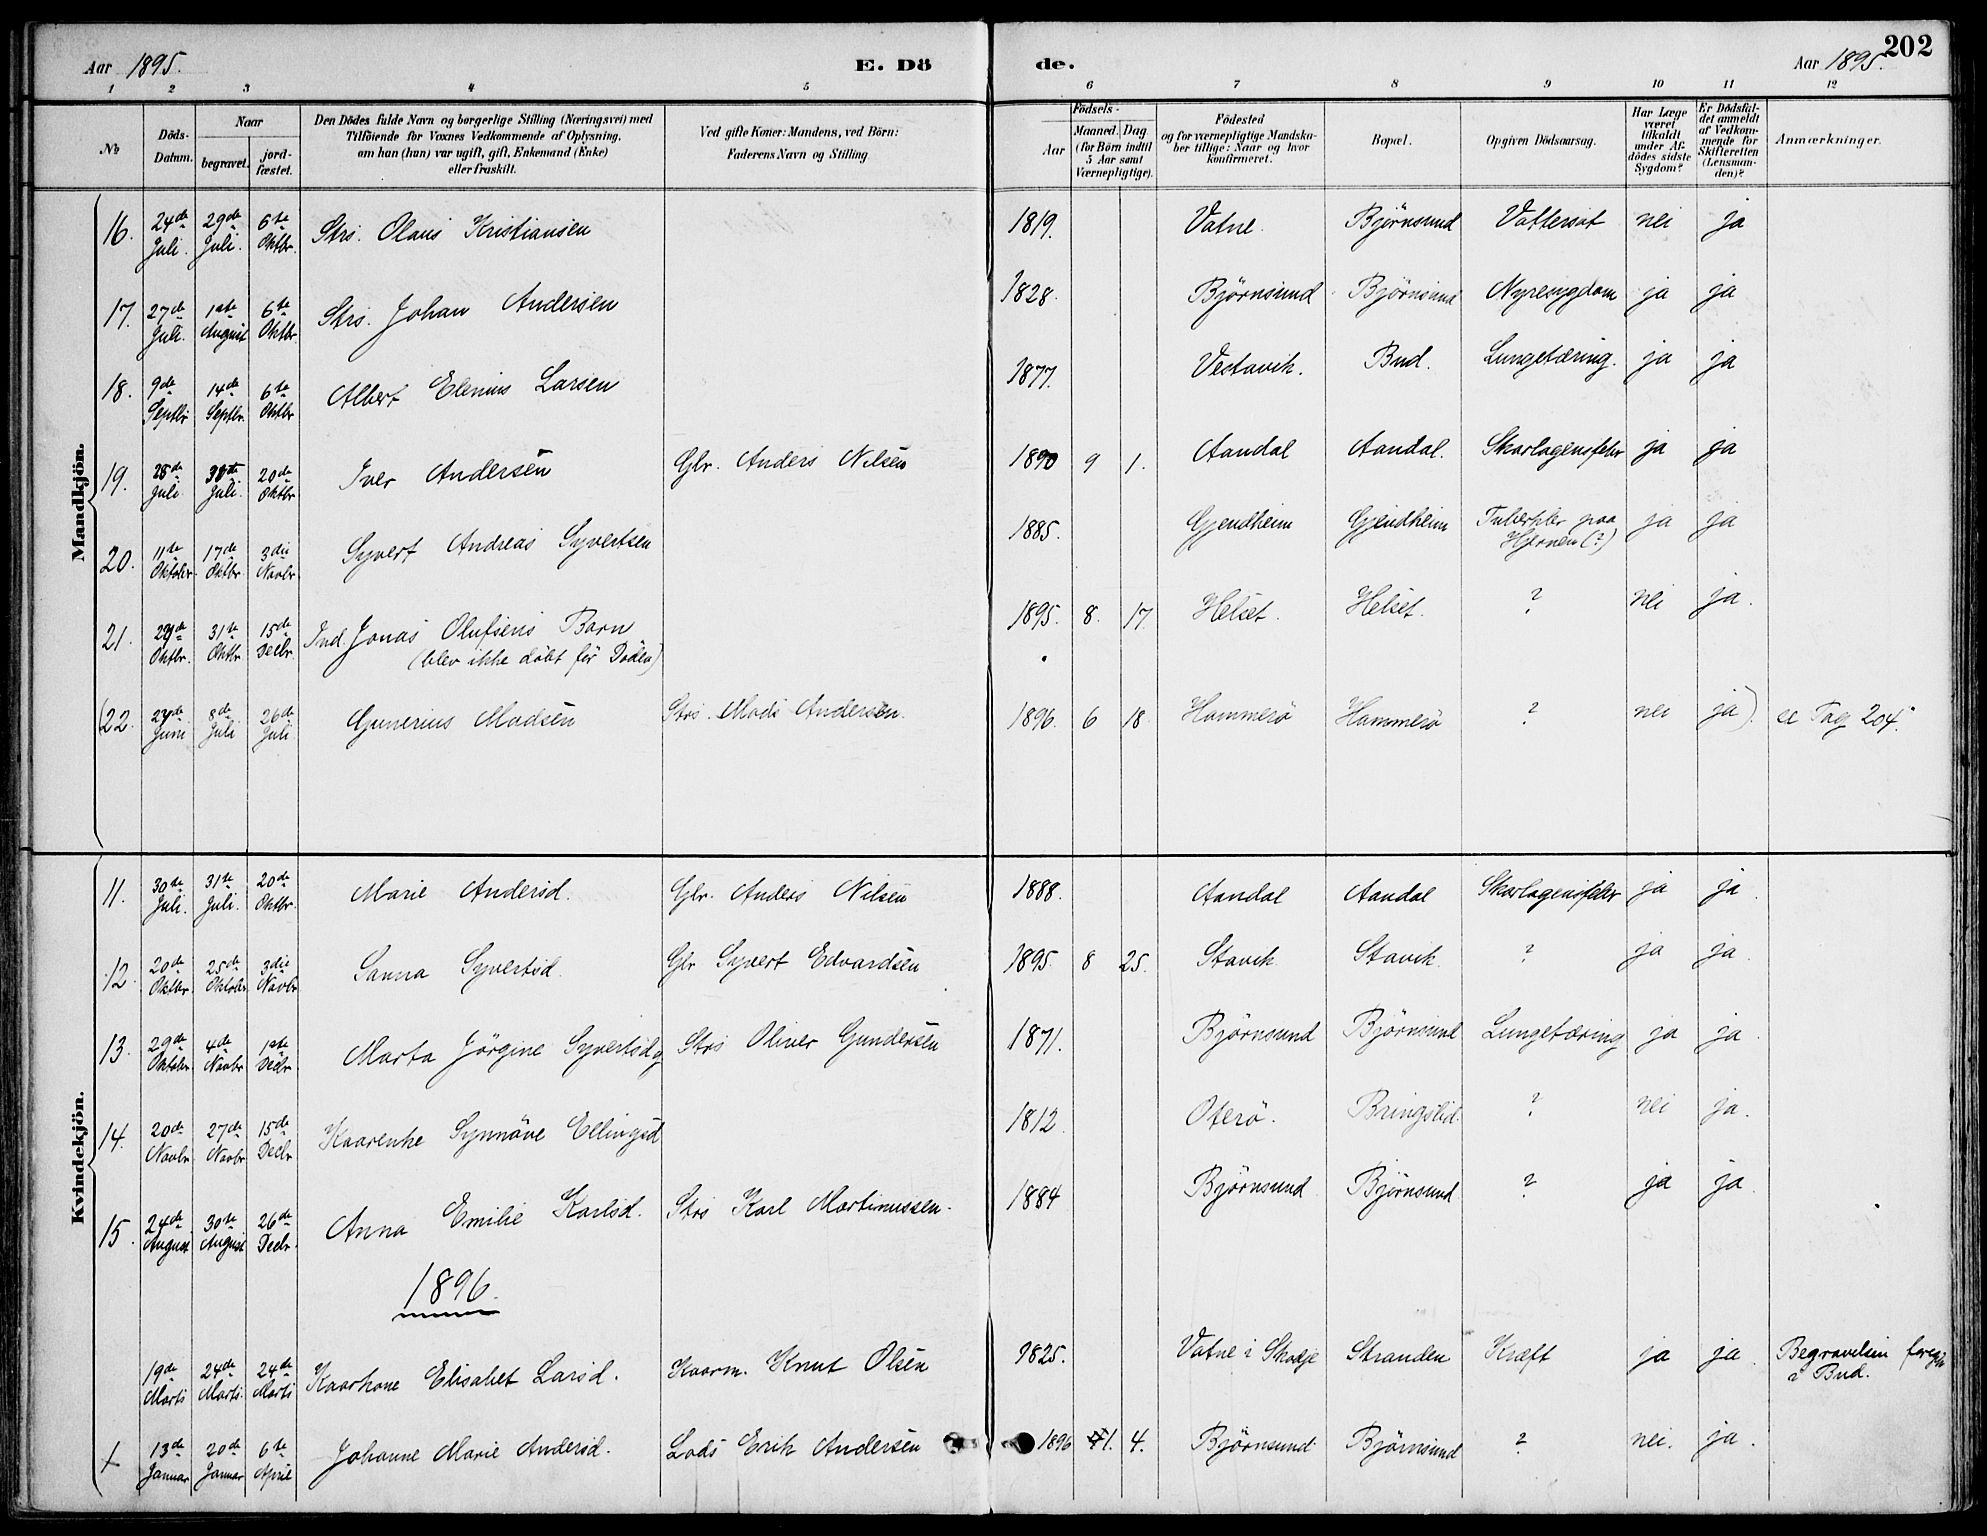 Aar 1895. E. Dö de. Aar 1895. 202
1 2 3 4 5 6 7 8 9 10 11 12
№ Döds-Datum. Naar begravet. jord-fæstet. Den Dödes fulde Navn og borgerlige Stilling (Næringsvei) med Tilföiende for Voxnes Vedkommende af Oplysning, om han (hun) var ugift, gift, Enkemand (Enke) eller fraskilt. Ved gifte Koner: Mandens, ved Börn: Faderens Navn og Stilling Födsels- Aar Maaned. Dag (for Börn indtil 5 Aar samt Værnepligtige). Födested og for værnepligtige Mandskaber tillige: Naar og hvor konfirmeret. Bopæl. Opgiven Dödsaarsag. Har Læge været tilkaldt under Afdödes sidste Sygdom? Er Dödsfaldet anmeldt af Vedkommende for Skifteretten (Lensmanden)? Anmærkninger.
Mandkjön.
16. 24de Juli. 29de Juli. 6te Oktbr. Strs. Olaus Kristiansen 1819. Vatne. Björnsund Vattersot nei ja
17. 27de Juli. 1ste August 6te Oktbr. Strs. Johan Andersen 1828. Björnsund Björnsund Nyresygdom ja ja
18. 9de Septbr 14de Septbr. 6te Oktbr. Albert Elenius Larsen 1877. Vestavik. Bud. Lungetæring. ja ja
19. 28de Juli. Juli. 20de Oktbr Iver Andersen Gbr. Anders Nilsen 1890 9 1. Aandal Aandal. Skarlagensfeber ja ja
20. 11te Oktober 17de Oktbr. 3die Novbr. Syvert Andreas Syvertsen 1885. Gjendheim Gjendheim Tuberkler paa Hjernen (?) ja ja
21. 29de Oktbr. 31te Oktbr 15de Decbr. Ind. Jonas Olufsens Barn (blev ikke döbt för Döden) 1895. 8. 17. Helset. Helset. ? nei ja.
(22. Juni 8de Juli 26de Juli Gunerius Madsen Strs. Mads Andersen. 1896. 6 18 Hammerö Hammerö ? nei ja). se Pag 204.
Kvindekjön.
11. 30te Juli. 31te Juli. 20de Oktbr. Marie Andersd. Gbr. Anders Nilsen 1888. Aandal Aandal Skarlagensfeber ja ja.
12. 20de Oktbr. 25de Oktober 3die Novbr Sanna Syvertsd. Gbr Syvert Edvardsen 1895. 8 25. Stavik Stavik ? ja ja.
13. 29de Oktober 4de Novbr 1ste Decbr. Marta Jörgine Syvertsd. Strs Oliver Gundersen 1871. Björnsund Björnsund Lungetæring ja ja.
14. 20de Novbr. 27de Novbr 15de Decbr Kaarenke Synnöve Ellingsd 1812. Oterö. Bringslid. ? nei ja.
15. 24de August. 30te August 26de Decbr. Anna Emilie Karlsd. Strs Karl Martinussen. 1884 Björnsund Björnsund ? ja ja.
1896.
19de Marts 24de Marts. 24de Marts Kaarhane Elisabet Larsd. Kaarm. Knut Olsen 1825. Vatne i Skodje Stranden Kræft ja ja. Begravelsen i Bud.
+ 13de Januar 20de Januar 6te April Johanne Marie Andersd. Lods Erik Andersen 1896 1. 4. Björnsund Björnsund ? nei. ja.